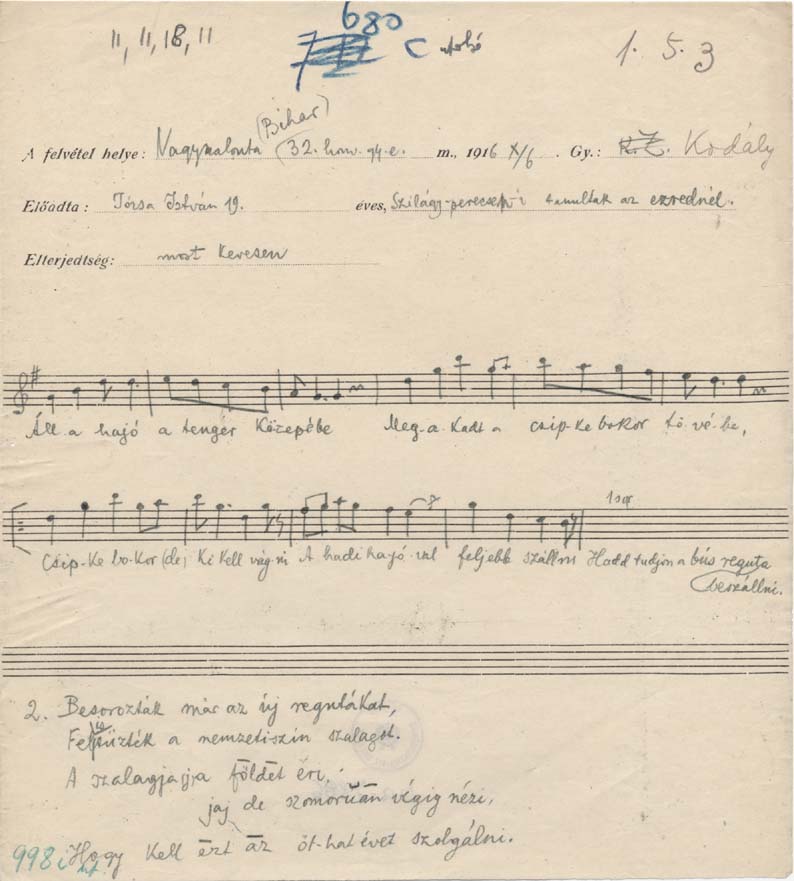 11, 11, 18, 11
680
C utolsó
1. 5. 3
A felvétel helye: Nagyszalonta (Bihar) 32. honv. gy. e. m., 1916 X/6. Gy.: K. Z. Kodály
Előadta: Tórsa István 19. éves, Szilágy-perecseni tanulták az ezrednél.
Elterjedtség: most kevesen
Áll a hajó a tenger közepébe Meg-a-kadt a csip-ke bokor tö-vé-be,
Csip-ke bo-kor (de) ki kell vág-ni A hadi hajó-val feljebb szállni Hadd tudjon a bús reguta
1 sor
beszállni.
2. Besorozták már az új regutákat,
Feltűzték a nemzetiszín szalagot.
A szalagja jja földet éri,
jaj de szomorúan végig nézi,
Hogy kell ezt az öt-hat évet szolgálni.
998